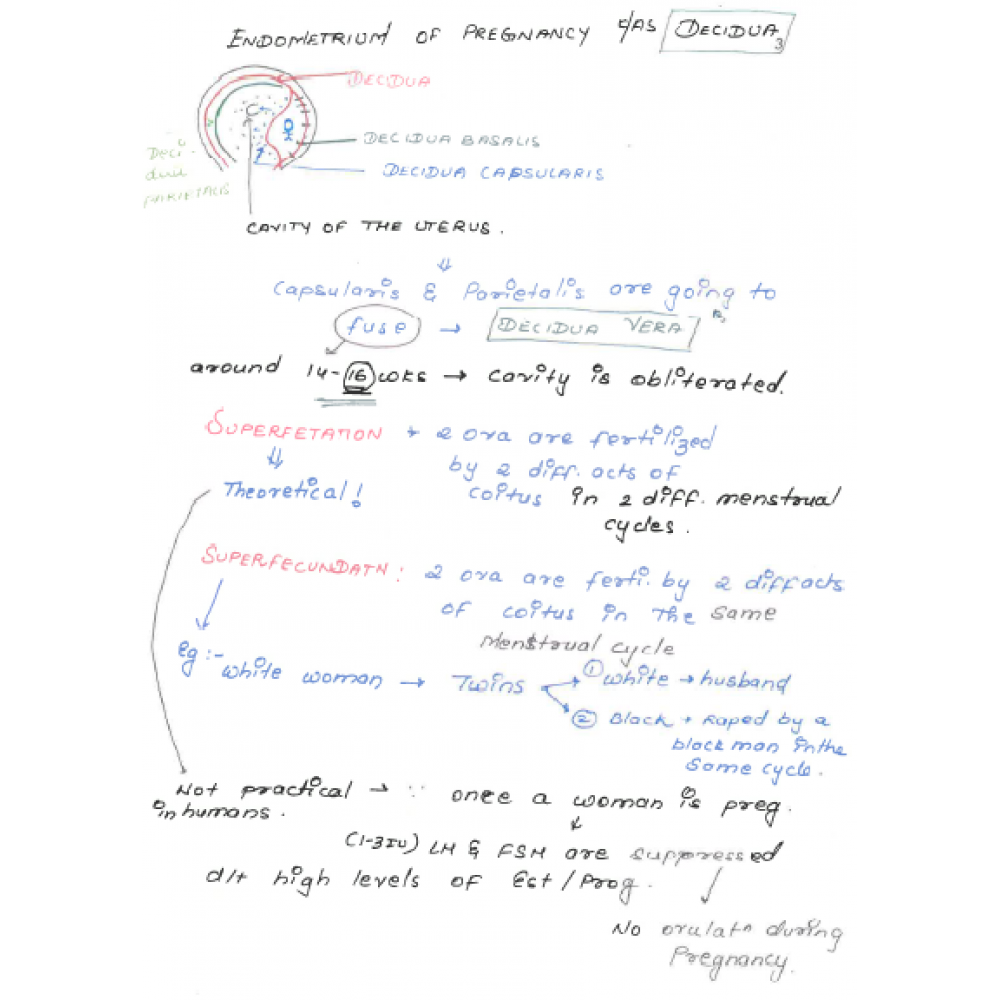 ENDOMETRIUM OF PREGNANCY c/AS DECIDUA 3
DECIDUA
DECIDUA BASALIS
DECIDUA CAPSULARIS
Deci-
dua
PARIETALIS
CAVITY OF THE UTERUS.
Capsularis & Parietalis are going to
fuse → DECIDUA VERA
around 14-16 wks → cavity is obliterated.
SUPERFETATION → 2 ova are fertilized
by 2 diff. acts of
Theoretical! coitus in 2 diff. menstrual
cycles.
SUPERFECUNDATN: 2 ova are ferti. by 2 diff acts
of coitus in the same
Menstrual cycle
Eg:- White woman → Twins ① White → husband
② Black → Raped by a
black man in the
Same cycle.
Not practical → ∵ once a woman is preg.
in humans.
(1-3IU) LH & FSH are suppressed
d/t high levels of Est/Prog.
No ovulatn during
Pregnancy.